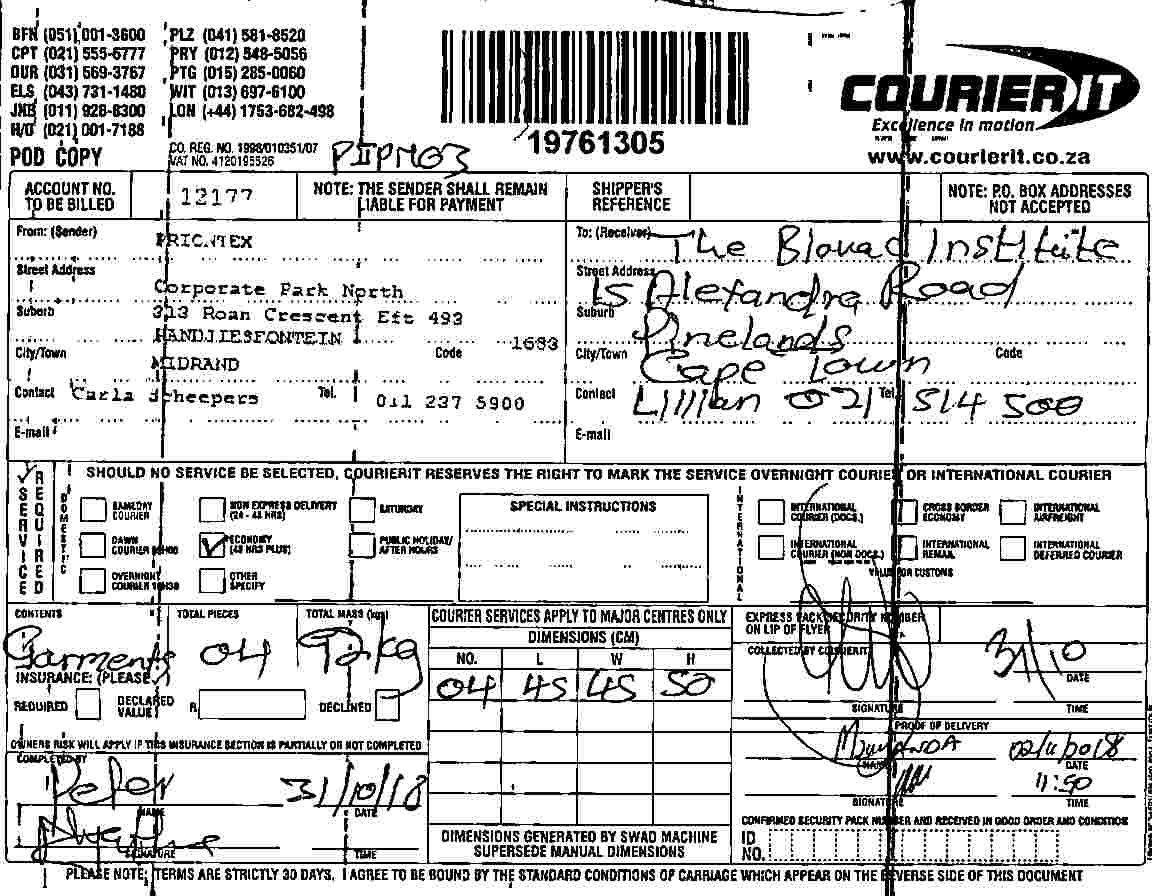 BFN (051) 001-3600 PLZ (041) 581-8520
CPT (021) 555-6777 PRY (012) 548-5056
DUR (031) 569-3767 PTG (015) 285-0060
ELS (043) 731-1480 WIT (013) 697-6100
JNB (011) 928-8300 LON (+44) 1753-682-498
H/O (021) 001-7188
POD COPY
CO. REG. NO. 1998/010351/07
VAT NO. 4120195526
PIIPMG3
19761305
COURIER IT
Excellence in motion
www.courierit.co.za
ACCOUNT NO. TO BE BILLED
12177
NOTE: THE SENDER SHALL REMAIN LIABLE FOR PAYMENT
SHIPPER'S REFERENCE
NOTE: P.O. BOX ADDRESSES NOT ACCEPTED
From: (Sender)
PRIONTEX
Street Address
Corporate Park North
Suburb 313 Roan Crescent Eft 493
HANDJIESFONTEIN 1683
City/Town Code
MIDRAND
Contact Carla Scheepers Tel. 011 237 5900
E-mail
To: (Receiver) The Institute
Street Address 15 Alexandra Road
Suburb Pinelands
City/Town Cape Town Code
Contact Lillian Tel. 021 514 500
E-mail
SERVICE REQUIRED
SHOULD NO SERVICE BE SELECTED, COURIERIT RESERVES THE RIGHT TO MARK THE SERVICE OVERNIGHT COURIER OR INTERNATIONAL COURIER
DOMESTIC
SAMEDAY COURIER
NON EXPRESS DELIVERY (24 - 48 HRS)
SATURDAY
DAWN COURIER
ECONOMY (48 HRS PLUS)
PUBLIC HOLIDAY/ AFTER HOURS
OVERNIGHT COURIER
OTHER SPECIFY
SPECIAL INSTRUCTIONS
INTERNATIONAL
INTERNATIONAL COURIER (DOCS.)
CROSS BORDER ECONOMY
INTERNATIONAL AIRFREIGHT
INTERNATIONAL COURIER (NON DOCS.)
INTERNATIONAL REMAIL
INTERNATIONAL DEFERRED COURIER
VALUE FOR CUSTOMS
CONTENTS TOTAL PIECES TOTAL MASS (kg)
Garments 04
INSURANCE: (PLEASE ✓)
REQUIRED DECLARED VALUE R DECLINED
OWNERS RISK WILL APPLY IF THIS INSURANCE SECTION IS PARTIALLY OR NOT COMPLETED
COMPLETED BY
Peter 31/10/18
NAME DATE
SIGNATURE TIME
COURIER SERVICES APPLY TO MAJOR CENTRES ONLY
DIMENSIONS (CM)
NO. L W H
04 45 45 50
DIMENSIONS GENERATED BY SWAD MACHINE SUPERSEDE MANUAL DIMENSIONS
EXPRESS PACK SECURITY NUMBER ON LIP OF FLYER
COLLECTED BY COURIERIT
31/10
DATE
SIGNATURE TIME
PROOF OF DELIVERY
02/11/2018
NAME DATE
11:50
SIGNATURE TIME
CONFIRMED SECURITY PACK NUMBER AND RECEIVED IN GOOD ORDER AND CONDITION
ID NO.
PLEASE NOTE; TERMS ARE STRICTLY 30 DAYS. I AGREE TO BE BOUND BY THE STANDARD CONDITIONS OF CARRIAGE WHICH APPEAR ON THE REVERSE SIDE OF THIS DOCUMENT